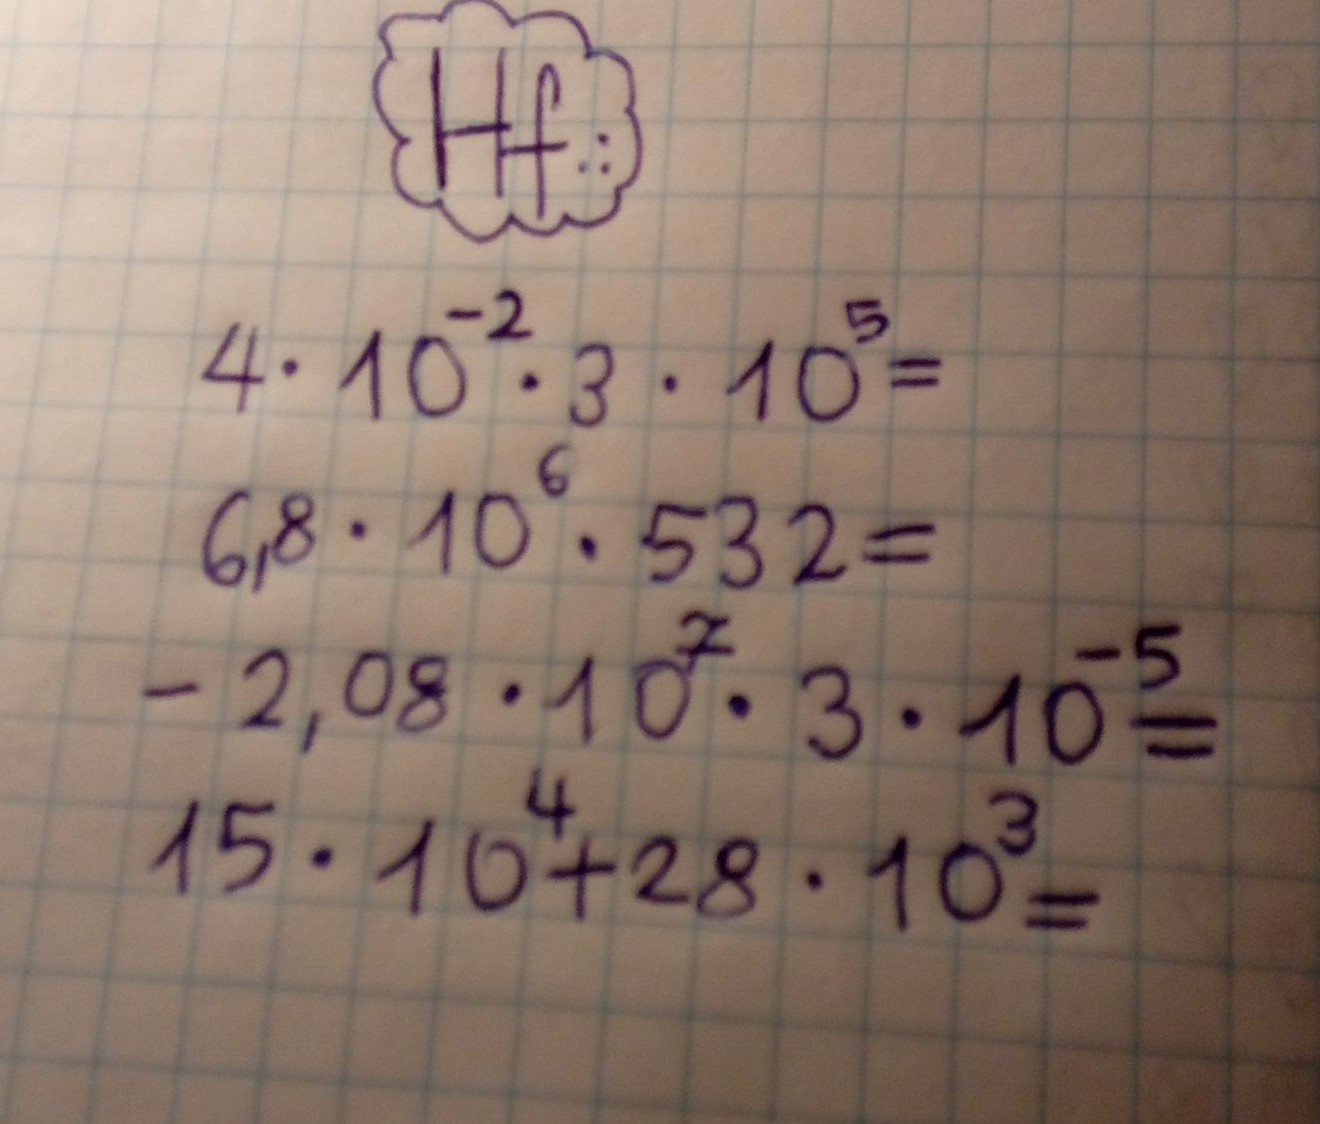 Hf.:
4 · 10⁻² · 3 · 10⁵ =
6,8 · 10⁶ · 532 =
- 2,08 · 10⁷ · 3 · 10⁻⁵ =
15 · 10⁴ + 28 · 10³ =